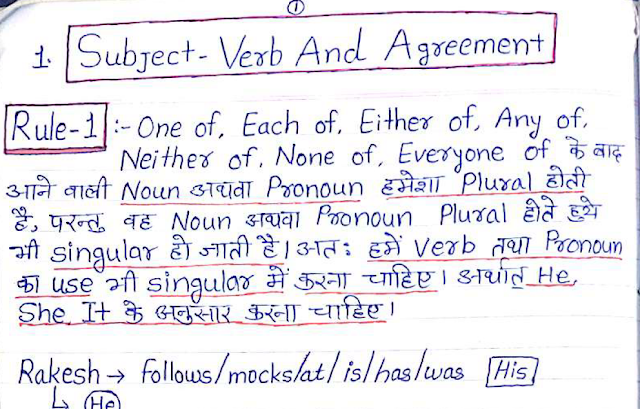 ①
1. Subject-Verb And Agreement
Rule-1 :- One of, Each of, Either of, Any of,
Neither of, None of, Everyone of के बाद
आने वाली Noun अथवा Pronoun हमेशा Plural होती
है, परन्तु वह Noun अथवा Pronoun Plural होते हुये
भी singular हो जाती है। अतः हमें verb तथा Pronoun
का use भी singular में करना चाहिए। अर्थात् He,
She, It के अनुसार करना चाहिए।
Rakesh → follows/mocks/at/is/has/was His
↳ He